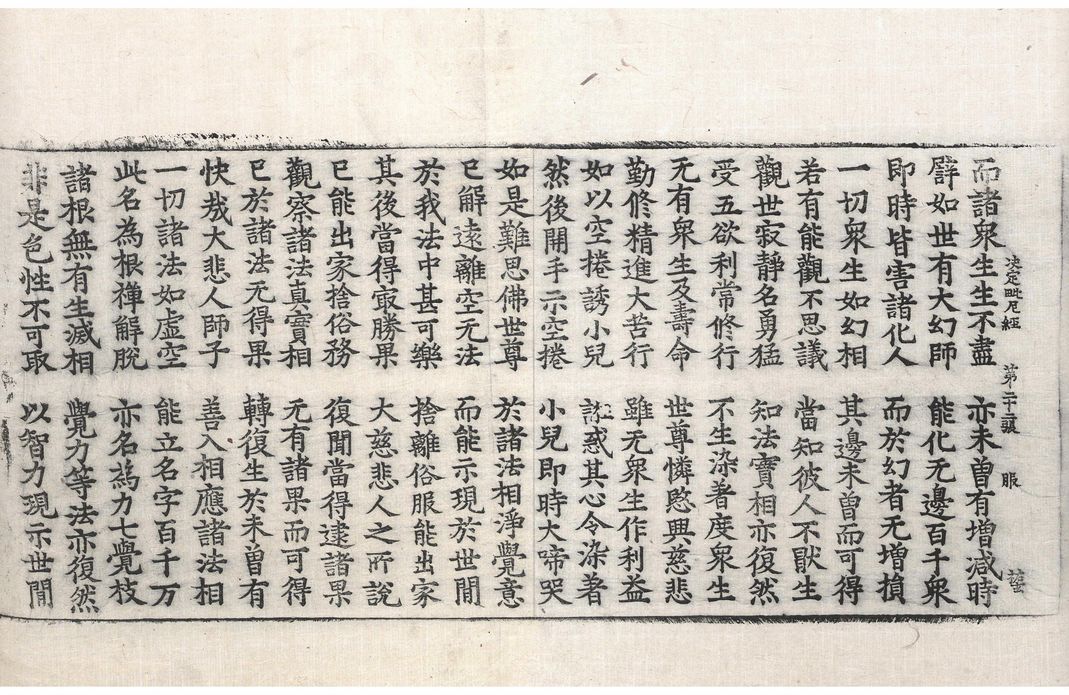 决定毗尼經 第二十二張 服
而諸衆生生不盡 亦未曾有增減時
譬如世有大幻師 能化无邊百千衆
即時皆害諸化人 而於幻者无增損
一切衆生如幻相 其邊未曾而可得
若有能觀不思議 當知彼人不猒生
觀世寂靜名勇猛 知法實相亦復然
受五欲利常修行 不生染著度衆生
无有衆生及壽命 世尊憐愍興慈悲
勤修精進大苦行 雖无衆生作利益
如以空捲誘小兒 誑惑其心令染著
然後開手示空捲 小兒即時大啼哭
如是難思佛世尊 於諸法相淨覺意
已解遠離空无法 而能示現於世間
於我法中甚可樂 捨離俗服能出家
其後當得寂勝果 大慈悲人之所說
已能出家捨俗務 復聞當得逮諸果
觀察諸法真實相 无有諸果而可得
已於諸法无得果 轉復生於未曾有
快哉大悲人師子 善入相應諸法相
一切諸法如虛空 能立名字百千万
此名為根禪解脫 亦名為力七覺枝
諸根無有生滅相 覺力等法亦復然
非是色性不可取 以智力現示世間